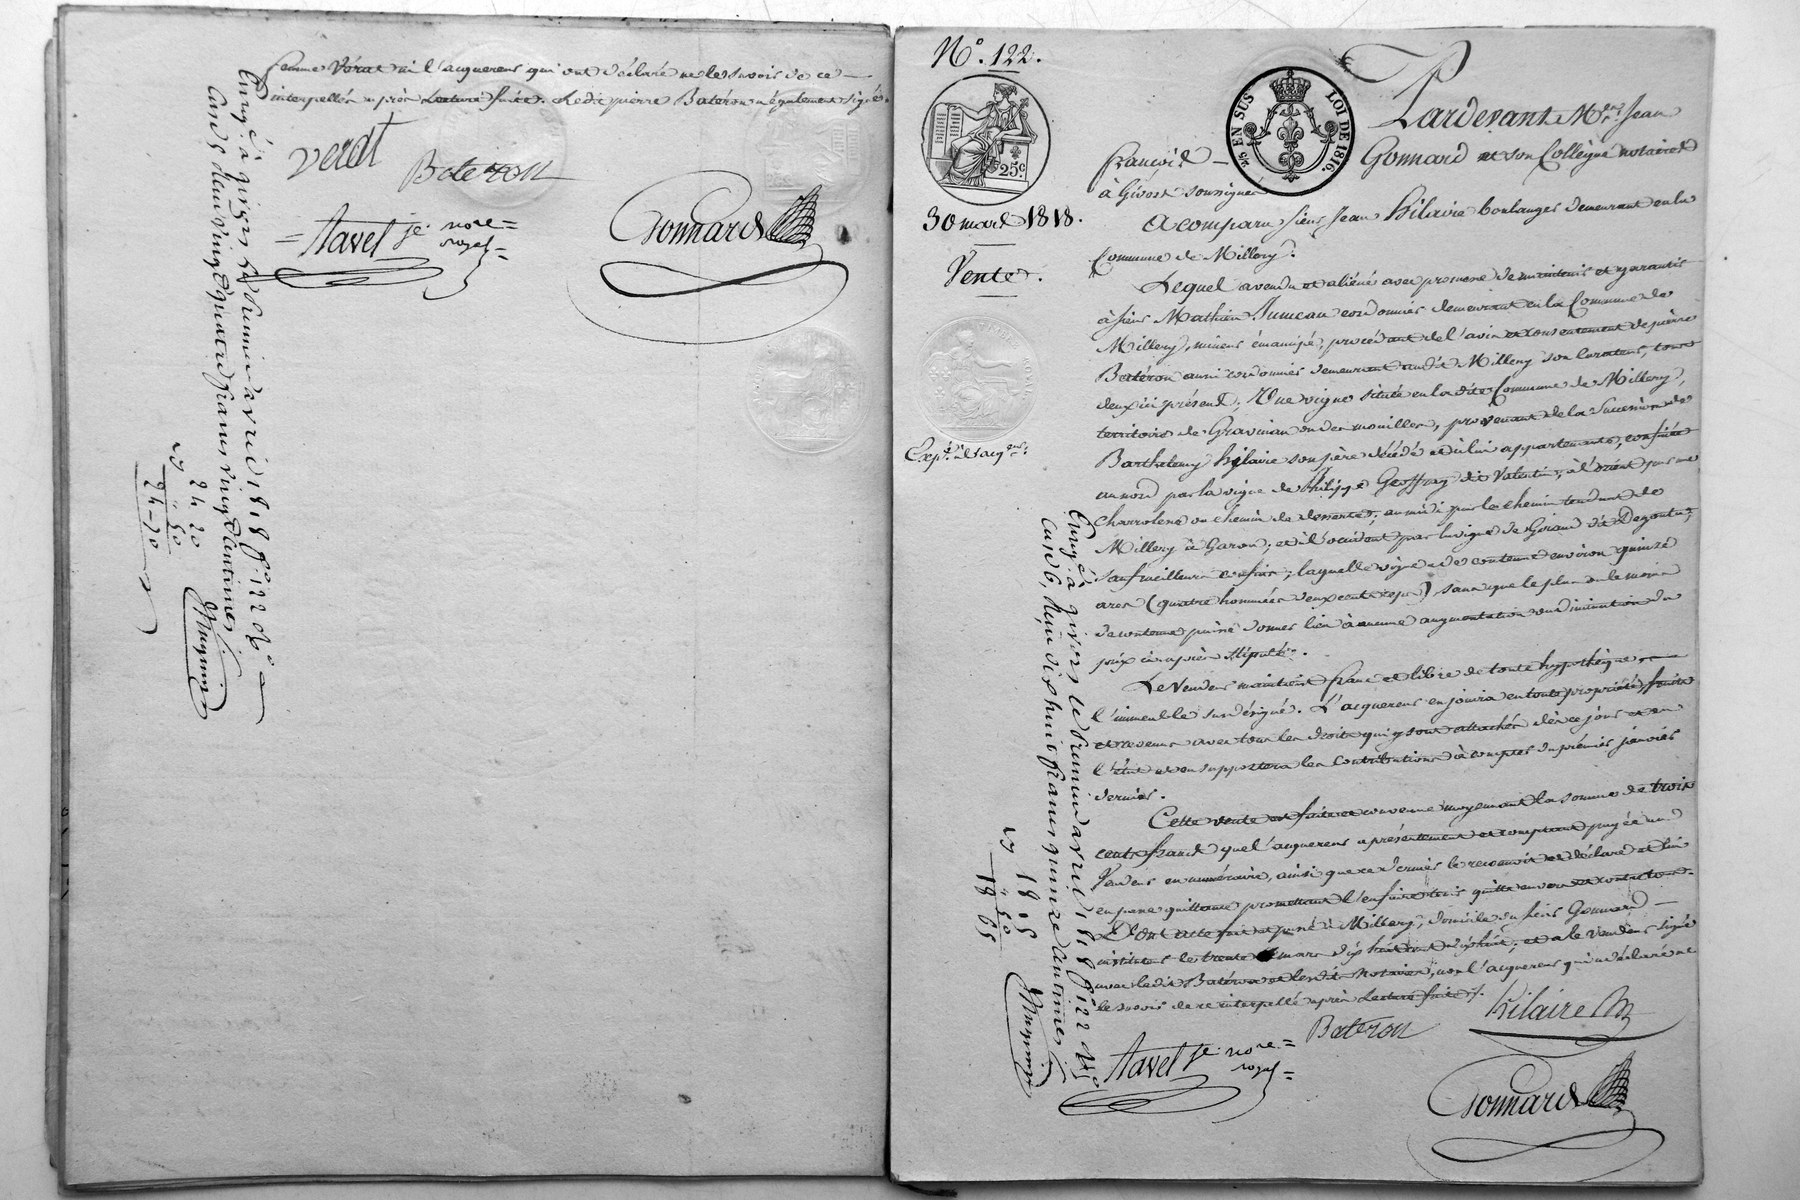 femme Vérat ni l'acquereur qui ont déclaré ne le savoir de ce
interpellés après Lecture faite. Ledit pierre Batéron a également signé.
verat
Bateron
Tavel je. nore =
royal =
Gonnard
Enreg.é à givors le premier avril 1818 f.o 122
Case 5, Reçu vingt quatre francs vingt centimes
24 20
" 50
24-70
N.o 122.
25c
30 mars 1818.
Vente.
Exp.
25 EN SUS
LOI DE 1816.
TIMBRE ROYAL
Pardevant M.e Jean
françois Gonnard et son Collègue notaires
à Givors soussignés
A comparu sieur Jean hilaire boulanger demeurant en la
Commune de Millery.
Lequel a vendu et aliéné avec promesse de maintenir et garantir
à sieur Mathieu Jumeau cordonnier demeurant en la Commune de
Millery, mineur émancipé, procédant de l'avis et consentement de pierre
Batéron aussi cordonnier demeurant audit Millery son Curateur, tous
deux ici présents, Une vigne située en la dite Commune de Millery,
territoire de Gravinan ou des mouilles, provenant de la Succession de
Barthelemy hilaire son père décédé et à lui appartenante, confinée
au nord par la vigne de Philippe Geoffray dit Valentin, à l'orient par une
Charrolene ou chemin de desserte, au midi par le chemin tendant de
Millery à Garon; et à l'occident par la vigne de Giraud dit
sauf meilleurs confins; laquelle vigne est de contenue environ quinze
ares (quatre hommées deux cents ceps) sans que le plus ou le moins
de contenue puisse donner lieu à aucune augmentation ou diminution du
prix ci-après stipulé.
Le Vendeur maintient franc et libre de toute hypothèque
l'immeuble susdésigné. L'acquereur en jouira en toute propriété, fruits
et revenus avec tous les droits qui y sont attachés dès ce jour et en
l'état et en supportera les Contributions à compter du premier janvier
dernier.
Cette vente est faite et convenue moyennant la somme de trois
cents francs que l'acquereur a présentement et comptant payée au
Vendeur en numéraire, ainsi que ce dernier le reconnoit et déclare et lui
en passe quittance promettant l'en faire tenir quitte envers et contre tous.
Dont acte fait et passé à Millery, domicile du sieur Gonnard
instituteur le trente mars dix huit cent dix huit; et a le vendeur signé
avec ledit Batéron et lesdits Notaires, non l'acquereur qui a déclaré ne
le savoir de ce interpellé après Lecture faite.
hilaire
Bateron
Tavel je. nore =
royal =
Gonnard
Enreg.é à givors le premier avril 1818 f.o 122
Case 6, Reçu dix huit francs quinze centimes
18 15
" 50
18 65